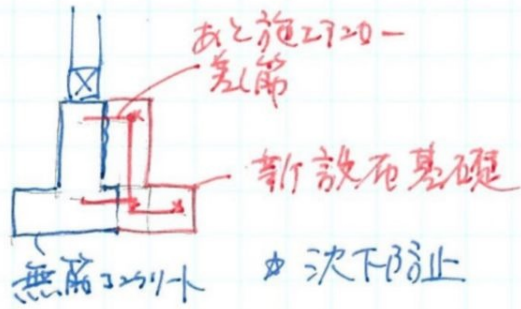 あと施工アンカー
差し筋
新設布基礎
無筋コンクリート
☆ 沈下防止